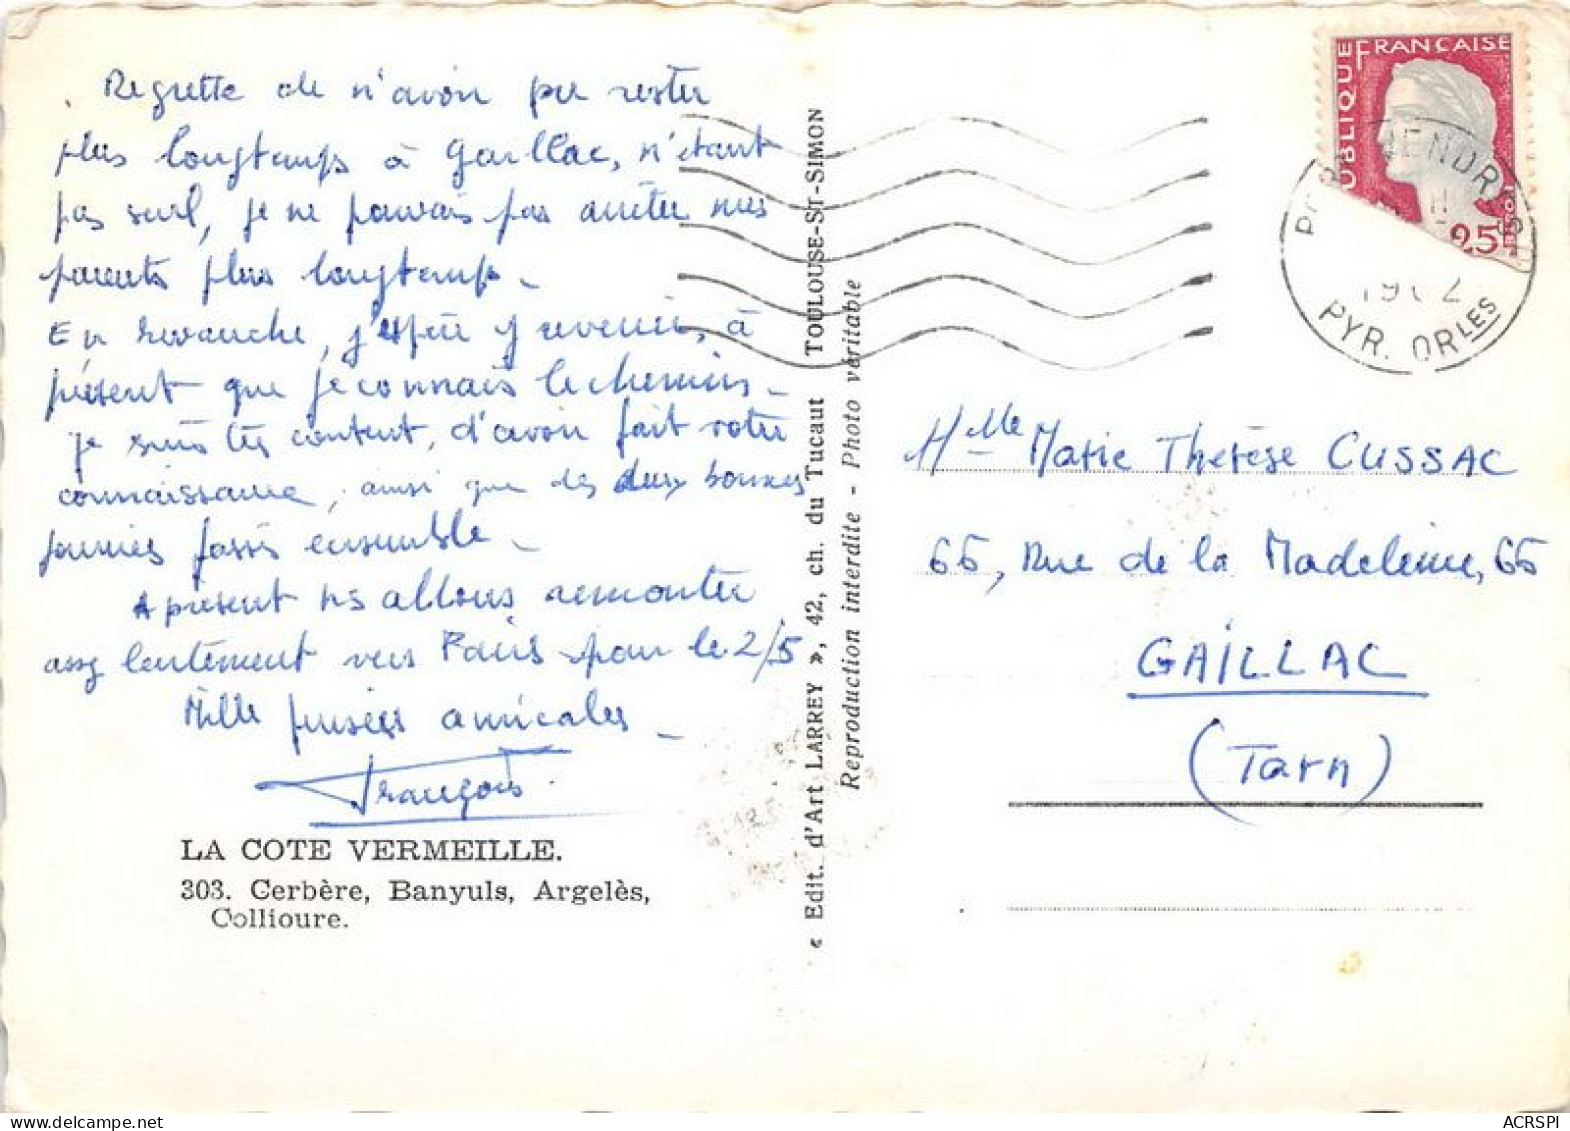 Regrette de n'avoir pu rester
plus longtemps à Gaillac, n'étant
pas seul, je ne pouvais pas arrêter mes
parents plus longtemps -
En revanche, j'espère y revenir, à
présent que je connais le chemin -
je suis très content, d'avoir fait votre
connaissance, ainsi que les deux bonnes
journées passés ensemble -
A présent ns allons remonter
assez lentement vers Paris pour le 2/5
Mille pensées amicales -
François
LA COTE VERMEILLE.
303. Cerbère, Banyuls, Argelès,
Collioure.
« Edit. d'Art LARREY », 42, ch. du Tucaut TOULOUSE-ST-SIMON
Reproduction interdite - Photo véritable
RÉPUBLIQUE FRANÇAISE
25
PYR. ORLES
Mlle Marie Thérèse CUSSAC
65, Rue de la Madeleine, 65
GAILLAC
(Tarn)
ACRSPI